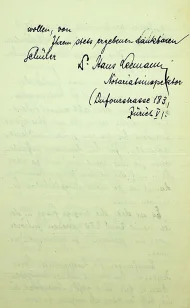 wollen, von
Ihrem stets ergebenen dankbaren
Schüler
Dr Hans
Notariatsinspektor
(Dufourstrasse 183,
Zürich V)